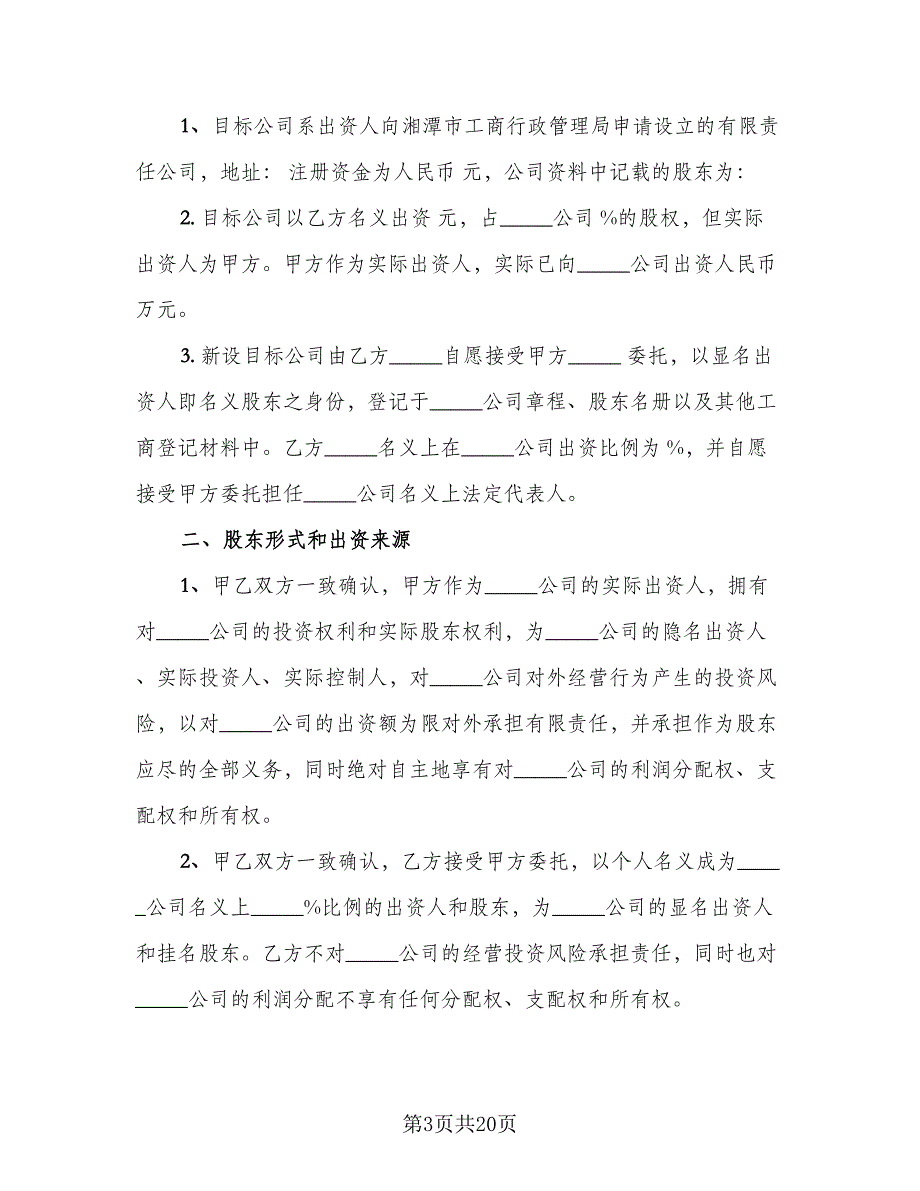 1、目标公司系出资人向湘潭市工商行政管理局申请设立的有限责
任公司，地址： 注册资金为人民币 元，公司资料中记载的股东为：
2. 目标公司以乙方名义出资 元，占_____公司 %的股权，但实际
出资人为甲方。甲方作为实际出资人，实际已向_____公司出资人民币
万元。
3. 新设目标公司由乙方_____自愿接受甲方_____ 委托，以显名出
资人即名义股东之身份，登记于_____公司章程、股东名册以及其他工
商登记材料中。乙方_____名义上在_____公司出资比例为 %，并自愿
接受甲方委托担任_____公司名义上法定代表人。
二、股东形式和出资来源
1、甲乙双方一致确认，甲方作为_____公司的实际出资人，拥有
对_____公司的投资权利和实际股东权利，为_____公司的隐名出资人
、实际投资人、实际控制人，对_____公司对外经营行为产生的投资风
险，以对_____公司的出资额为限对外承担有限责任，并承担作为股东
应尽的全部义务，同时绝对自主地享有对_____公司的利润分配权、支
配权和所有权。
2、甲乙双方一致确认，乙方接受甲方委托，以个人名义成为____
_公司名义上_____%比例的出资人和股东，为_____公司的显名出资人
和挂名股东。乙方不对_____公司的经营投资风险承担责任，同时也对
_____公司的利润分配不享有任何分配权、支配权和所有权。
第3页共20页